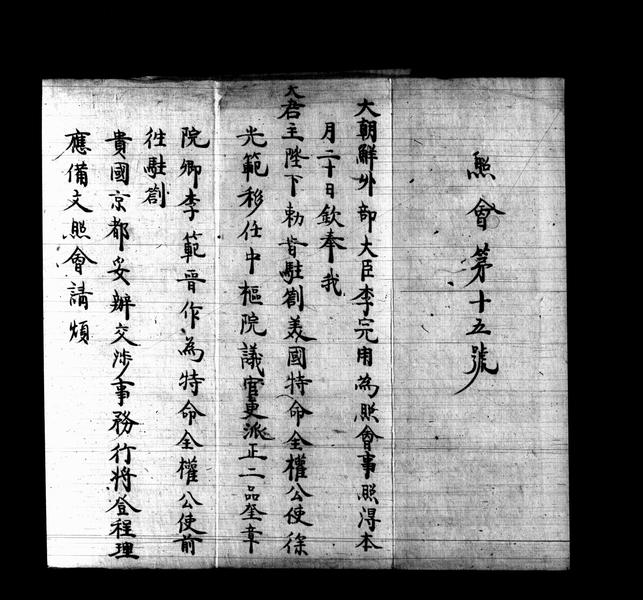 照會第十五號
大朝鮮外部大臣李完用為照會事照淂本
月二十日欽奉我
大君主陛下勅旨駐劄美國特命全權公使徐
光範移任中樞院議官更派正二品奎章
院卿李範晋作為特命全權公使前
徃駐劄
貴國京都妥辦交涉事務行將登程理
應備文照會請煩